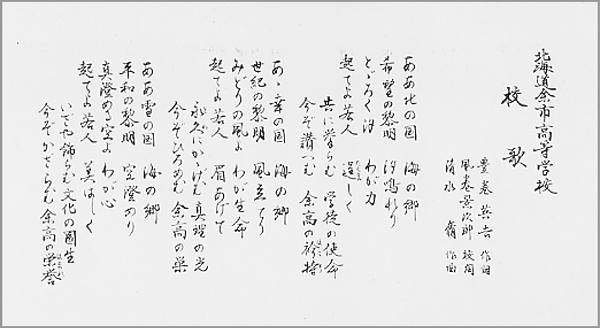 北海道余市高等学校
校歌
豊巻 作詞
風巻景次郎 校閲
清水 脩 作曲
ああ北の国 海の郷
希望の黎明 汐鳴れり
とゞろく汐 わが力
起てよ若人 逞しく
共に学ばむ 学徒の使命
今ぞ讃へむ 余高の矜持
あゝ幸の国 海の郷
世紀の黎明 風立てり
みどりの風よ わが生命
起てよ若人 眉あげて
永久にかゝげむ 真理の光
今ぞひろめむ 余高の栄
ああ雪の国 海の郷
平和の黎明 空澄めり
真澄める空よ わが心
起てよ若人 美はしく
いざや飾らむ 文化の園生
今ぞかざらむ 余高の栄誉